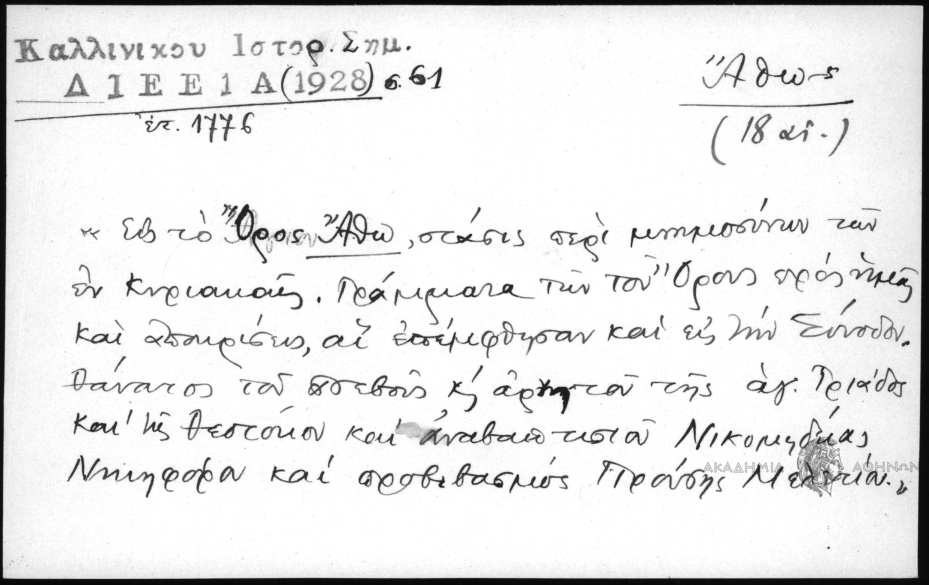 Καλλινικου Ιστορ. Σημ.
ΔΙΕΕ 1 Α (1928) σ. 61
ἐτ. 1776
Ἄθως
(18 αἰ.)
« Εἰς τὸ Ὄρος Ἄθω, στάσις περὶ μνημοσύνων τῶν
ἐν Κυριακαῖς. Γράμματα τῶν τοῦ Ὄρους πρὸς ἡμᾶς
καὶ ἀποκρίσεις, αἳ ἐπέμφθησαν καὶ εἰς τὴν Σύνοδον.
Θάνατος τοῦ ἀσεβοῦς κ' τοῦ τῆς ἁγ. Τριάδος
καὶ τῆς Θεοτόκου καὶ ἀναβαπτιστοῦ Νικομηδείας
Νικηφόρου καὶ προβιβασμὸς Προύσης Μελετίου. »
ΑΚΑΔΗΜΙΑ ΑΘΗΝΩΝ